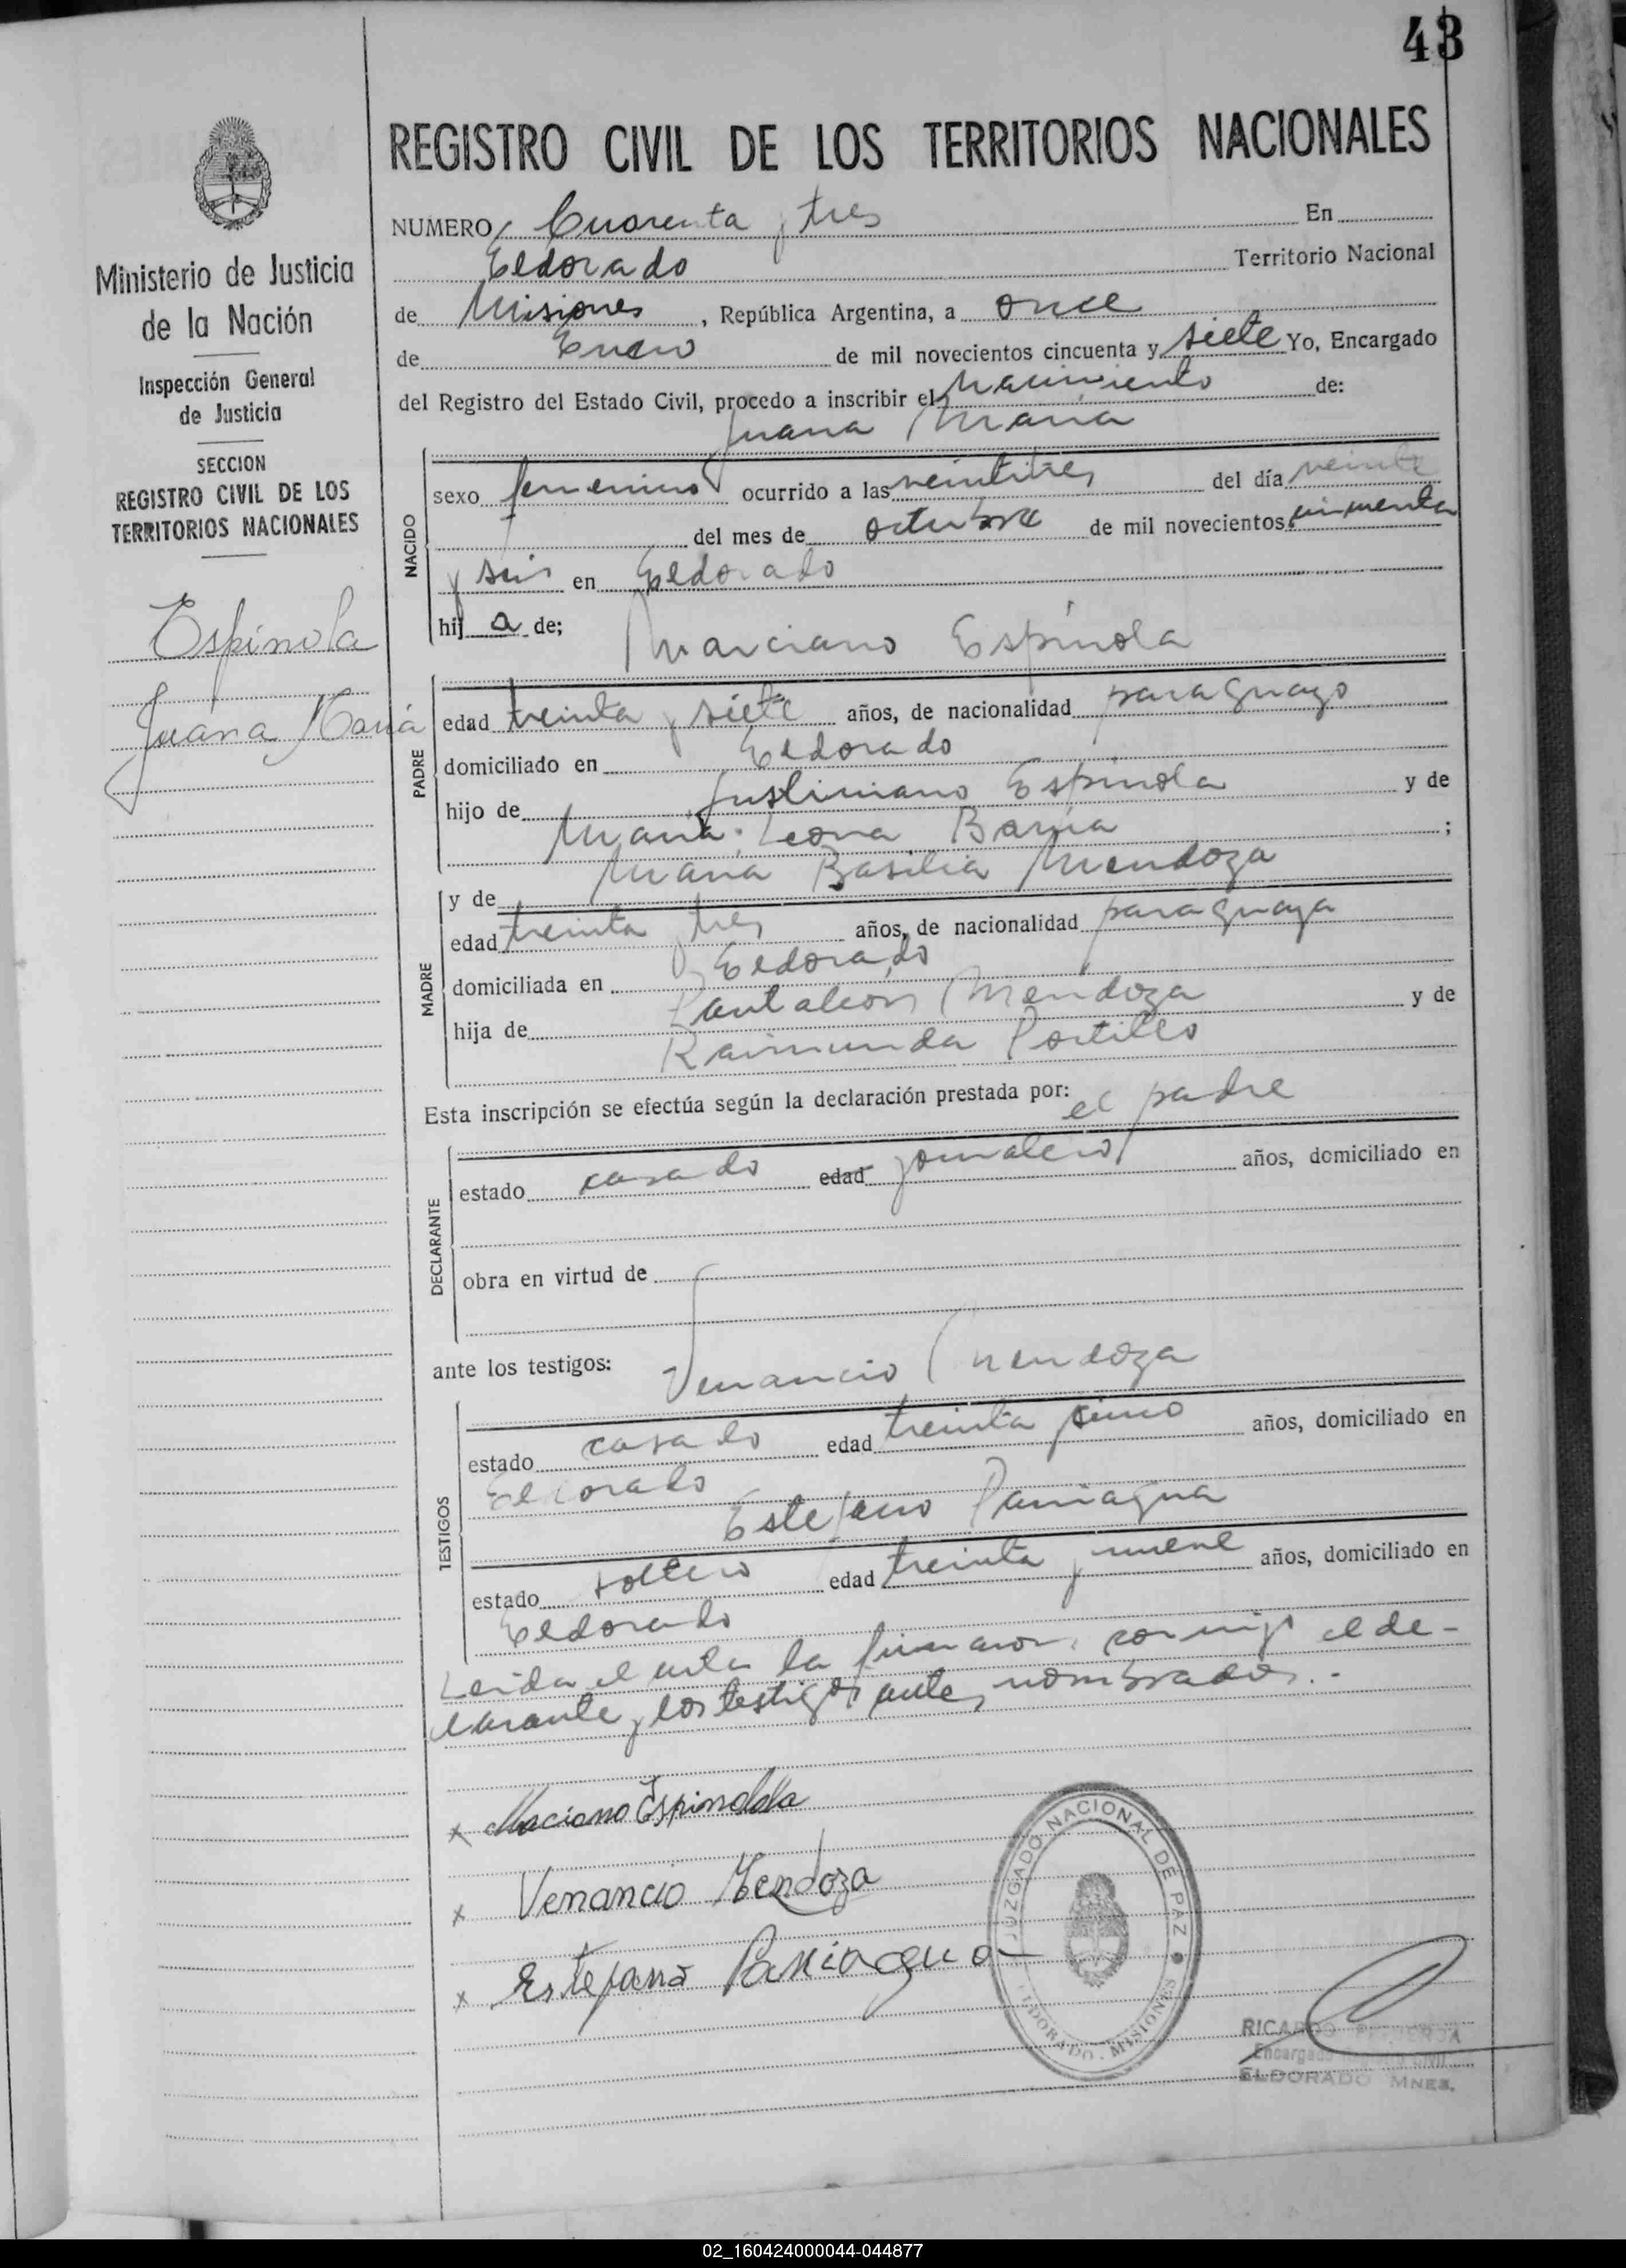 43
REGISTRO CIVIL DE LOS TERRITORIOS NACIONALES
Ministerio de Justicia
de la Nación
Inspección General
de Justicia
SECCION
REGISTRO CIVIL DE LOS
TERRITORIOS NACIONALES
Espínola
Juana María
NUMERO Cuarenta y tres En
Eldorado Territorio Nacional
de Misiones, República Argentina, a once
de Enero de mil novecientos cincuenta y siete Yo, Encargado
del Registro del Estado Civil, procedo a inscribir el nacimiento de:
Juana María
NACIDO
sexo femenino ocurrido a las veintitres del día veinte
del mes de octubre de mil novecientos cincuenta
y seis en Eldorado
hij a de;
Marciano Espínola
PADRE
edad treinta y siete años, de nacionalidad paraguayo
domiciliado en Eldorado
hijo de Justiniano Espínola y de
María Leona Barúa ;
y de María Basilia Mendoza
MADRE
edad treinta y tres años, de nacionalidad paraguaya
domiciliada en Eldorado
hija de Pantaleón Mendoza y de
Raimunda Portillo
Esta inscripción se efectúa según la declaración prestada por: el padre
DECLARANTE
estado casado edad jornalero años, domiciliado en
obra en virtud de
ante los testigos: Venancio Mendoza
TESTIGOS
estado casado edad treinta y cinco años, domiciliado en
Eldorado
Estefano Paniagua
estado soltero edad treinta y nueve años, domiciliado en
Eldorado
Leída el acta la firmaron conmigo el de-
clarante y los testigos antes nombrados.-
x Maciano Espinolola
x Venancio Mendoza
x Estefano Paniagua
JUZGADO NACIONAL DE PAZ
ELDORADO - MISIONES
RICARDO
Encargado Registro Civil
ELDORADO MNES.
02_160424000044-044877